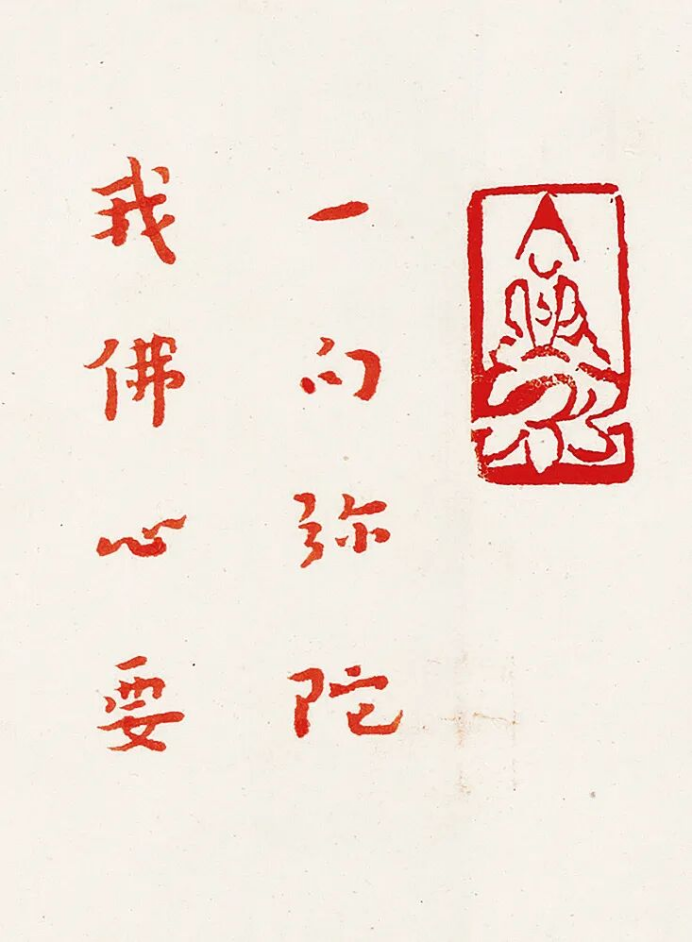 一向弥陀
我佛心要